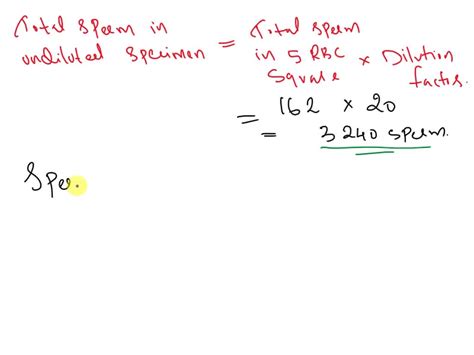 Total sperm in = Total sperm
undiluted specimen in 5 RBC × Dilution
Square factor.
= 162 × 20
= 3240 sperm.
Spe